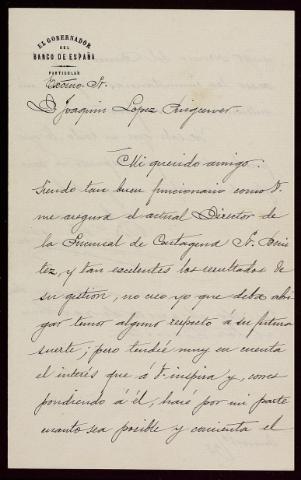 EL GOBERNADOR
DEL
BANCO DE ESPAÑA
PARTICULAR
Excmo Sr.
D. Joaquin Lopez Puigcerver
Mi querido amigo:
Siendo tan buen funcionario como V.
me asegura el actual Director de
la Sucursal de Cartagena Sr. Beni
tez, y tan excelentes los resultados de
su gestion, no creo yo que deba abri
gar temor alguno respecto á su futura
suerte; pero tendré muy en cuenta
el interés que á V. inspira y, corres
pondiendo á él, haré por mi parte
cuanto sea posible y convenga el